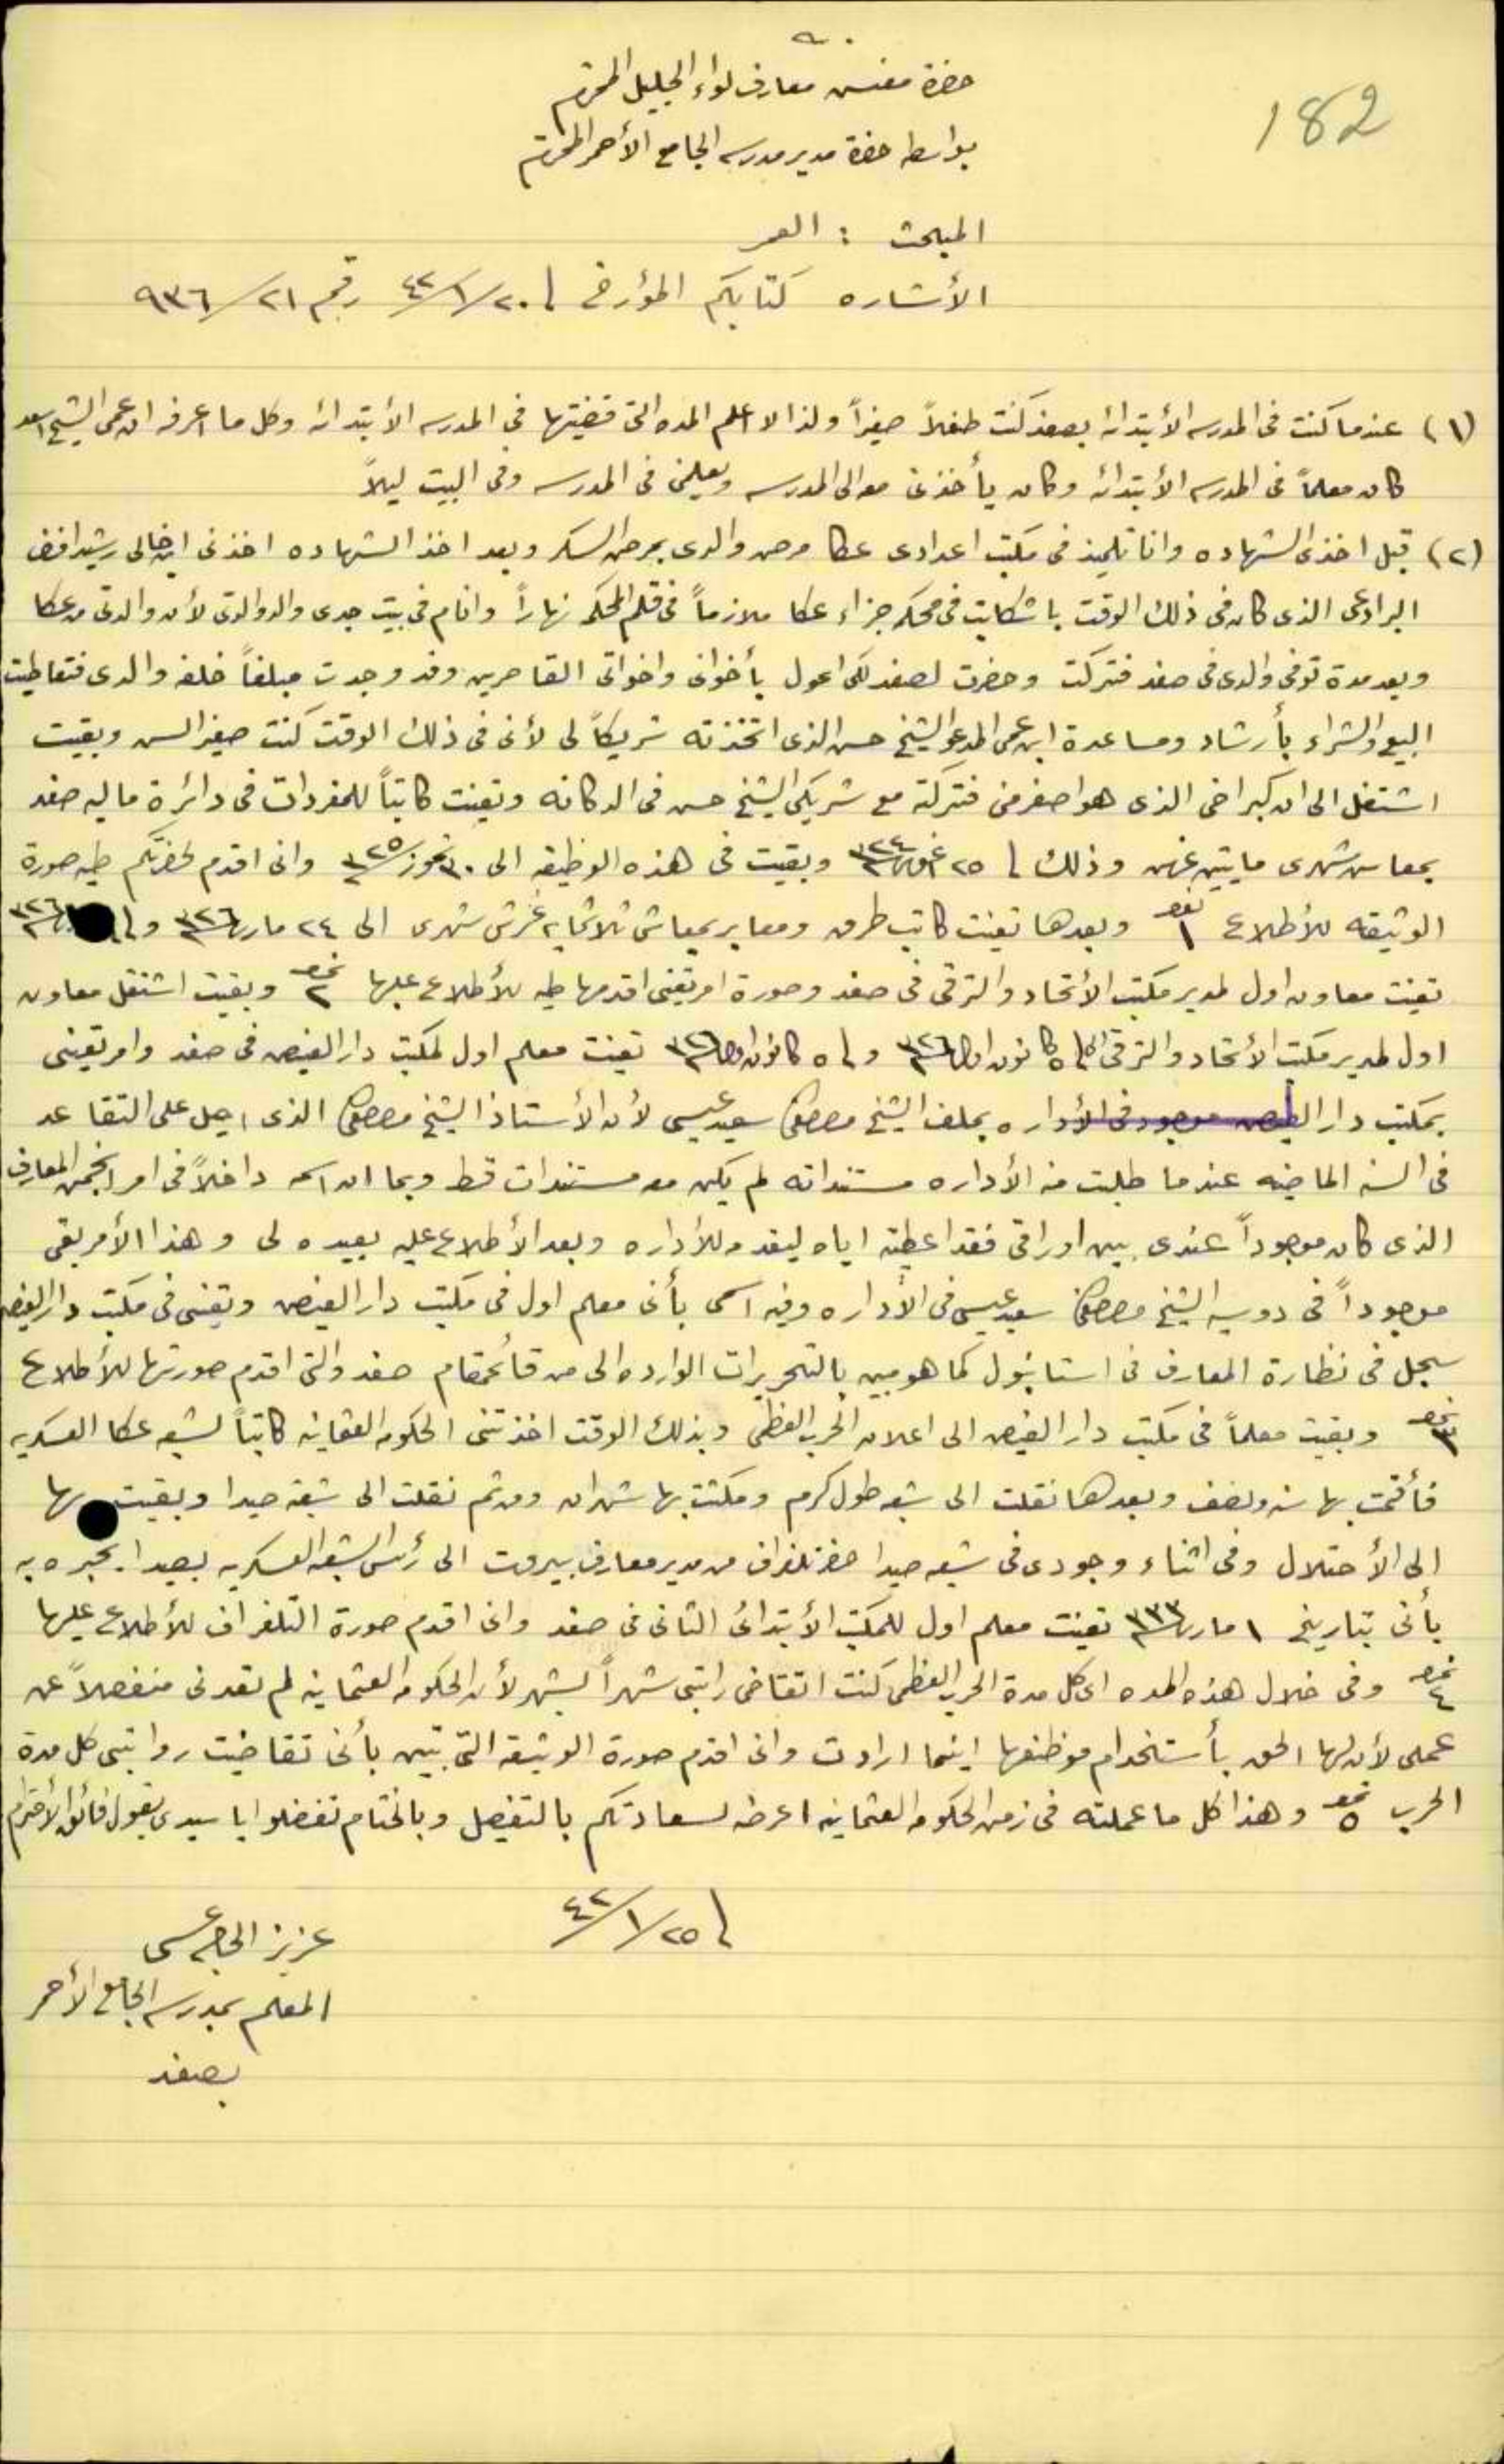 182
حضرة مفتش معارف لواء الجليل المحترم
بواسطة حضرة مدير مدرسه الجامع الأحمر المحترم
المبحث : العمر
الأشاره كتابكم المؤرخ في ٢٠/١/٤٢ رقم ٢١/٩٣٦
(١) عندما كنت في المدرسه الأبتدائه بصفد كنت طفلاً صغيراً ولذا لا اعلم المده التي قضيتها في المدرسه الأبتدائه وكل ما اعرفه ان عمي الشيخ اسعد
كان معلماً في المدرسه الأبتدائه وكان يأخذني معه الى المدرسه ويعلمني في المدرسه وفي البيت ليلاً
(٢) قبل اخذي الشهاده وانا تلميذ في مكتب اعدادي عكا مرض والدي بمرض السكر وبعد اخذ الشهاده اخذني ابن خالي رشيد افندي
البرادعي الذي كان في ذلك الوقت باشكاتب في محكمه جزاء عكا ملازماً في قلم المحكمه نهاراً وانام في بيت جدي والد والدتي لأن والدتي من عكا
وبعد مدة توفي والدي في صفد فتركت وحضرت لصفد لكي اعول بأخواني واخواتي القاصرين وقد وجدت مبلغاً خلفه والدي فتعاطيت
البيع والشراء بأرشاد ومساعدة ابن عمي المدعو الشيخ حسن الذي اتخذته شريكاً لي لأني في ذلك الوقت كنت صغير السن وبقيت
اشتغل الى ان كبر اخي الذي هو اصغر مني فتركته مع شريكي الشيخ حسن في الدكانه وتعينت كاتباً للمفردات في دائرة ماليه صفد
بمعاش شهري مايتين غرش وذلك في ٢٥ ٣٢٤ وبقيت في هذه الوظيفه الى ٣٠ تموز ٣٢٥ واني اقدم لحضرتكم طيه صورة
الوثيقه للأطلاع نمره ١ وبعدها تعينت كاتب طرق ومعابر بمعاش ثلاثمايه غرش شهري الى ٢٤ مارت ٣٢٦ وفي ٣٢٦
تعينت معاون اول لمدير مكتب الأتحاد والترقي في صفد وصورة امر تعيني اقدمها طيه للأطلاع عليها نمره ٢ وبقيت اشتغل معاون
اول لمدير مكتب الأتحاد والترقي الى ٥ كانون اول ٣٢٦ وفي ٥ كانون اول ٣٢٦ تعينت معلم اول لمكتب دار الفيض في صفد وامر تعييني
بمكتب دار الفيض موجود في الأداره بملف الشيخ مصطفى سعيد عيسى لأن الأستاذ الشيخ مصطفى الذي احيل على التقاعد
في السنه الماضيه عندما طلبت منه الأداره مستنداته لم يكن معه مستندات قط وبما ان اسمه داخلاً في امر انجمن المعارف
الذي كان موجوداً عندي بين اوراقي فقد اعطيته اياه ليقدمه للأداره وبعد الأطلاع عليه يعيده لي وهذا الأمر بقي
موجوداً في دوسيه الشيخ مصطفى سعيد عيسى في الأداره وفيه اسمي بأني معلم اول في مكتب دار الفيض وتعيني في مكتب دار الفيض
سجل في نظارة المعارف في استانبول كما هو مبين بالتحريرات الوارده الي من قائمقام صفد والتي اقدم صورتها للأطلاع
نمره ٣ وبقيت معلماً في مكتب دار الفيض الى اعلان الحرب العظمى وبذلك الوقت اخذتني الحكومه العثمانيه كاتباً لشعبه عكا العسكريه
فأقمت بها سنه ونصف وبعدها نقلت الى شعبه طول كرم ومكثت بها شهران ومن ثم نقلت الى شعبة صيدا وبقيت بها
الى الأحتلال وفي اثناء وجودي في شعبه صيدا حضر تلغراف من مدير معارف بيروت الى رئيس الشعبه العسكريه بصيدا يخبره به
بأني بتاريخ ١ مارت ٣٣٣ تعينت معلم اول للمكتب الأبتدائي الثاني في صفد واني اقدم صورة التلغراف للأطلاع عليها
نمره ٤ وفي خلال هذه المده اي كل مدة الحرب العظمى كنت اتقاضى راتبي شهراً لشهر لأن الحكومه العثمانيه لم تعدني منفصلاً عن
عملي لأن لها الحق بأستخدام موظفها اينما ارادت واني اقدم صورة الوثيقه التي تبين بأني تقاضيت رواتبي كل مدة
الحرب نمره ٥ وهذا كل ما عملته في زمن الحكومه العثمانيه اعرضه لسعادتكم بالتفصيل وبالختام تفضلوا يا سيدي بقبول فائق الأحترام
في ٢٥/١/٤٢
عزيز الحاج عيسى
المعلم بمدرسه الجامع الأحمر
بصفد